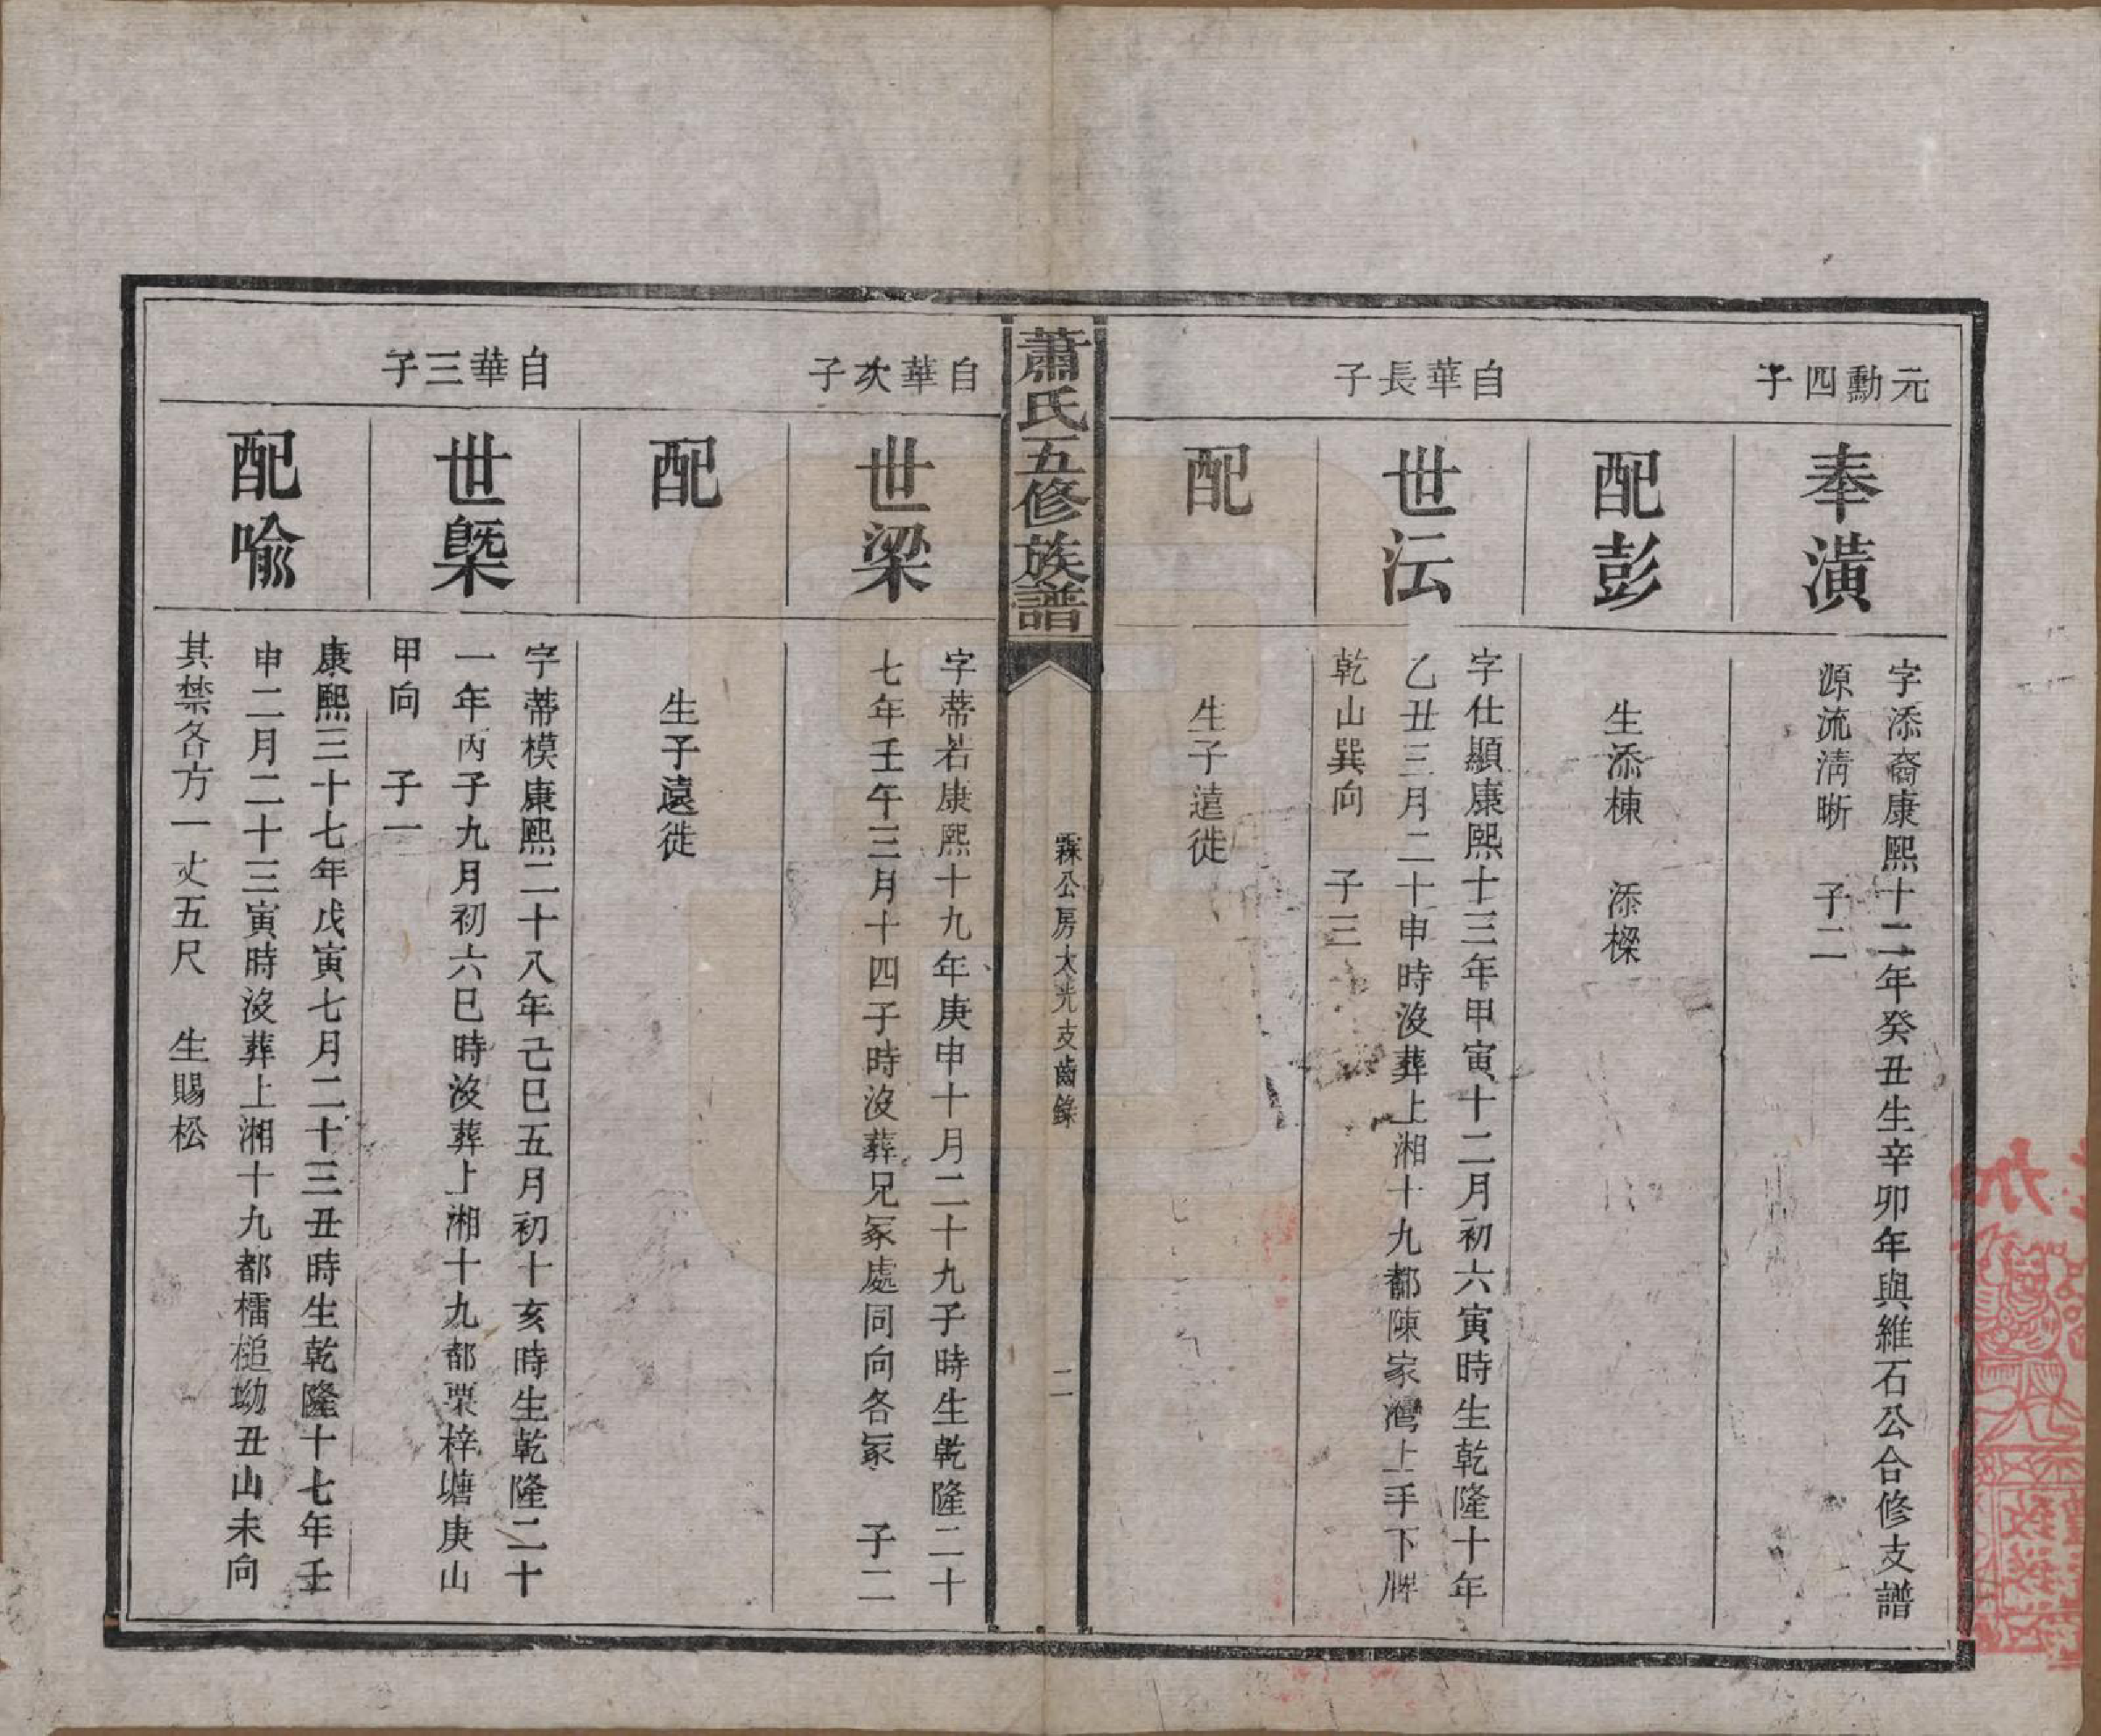 元勳四子
奉潢
字添裔康熙十二年癸丑生辛卯年與維石公合修支譜
源流淸晣　子二
配彭
生添棟　添樑
自華長子
世沄
字仕顯康熙十三年甲寅十二月初六寅時生乾隆十年
乙丑三月二十申時沒葬上湘十九都陳家灣上手下牌
乾山巽向　子三
配
生子遠徙
蕭氏五修族譜
霖公房大光支齒錄
二
自華次子
世梁
字蒂若康熙十九年庚申十月二十九子時生乾隆二十
七年壬午三月十四子時沒葬兄冢處同向各冢　子二
配
生子遠徙
自華三子
世槩
字蒂模康熙二十八年己巳五月初十亥時生乾隆二十
一年丙子九月初六巳時沒葬上湘十九都栗梓塘庚山
甲向　子一
配喩
康熙三十七年戊寅七月二十三丑時生乾隆十七年壬
申二月二十三寅時沒葬上湘十九都檑槌坳丑山未向
其禁各方一丈五尺　生賜松